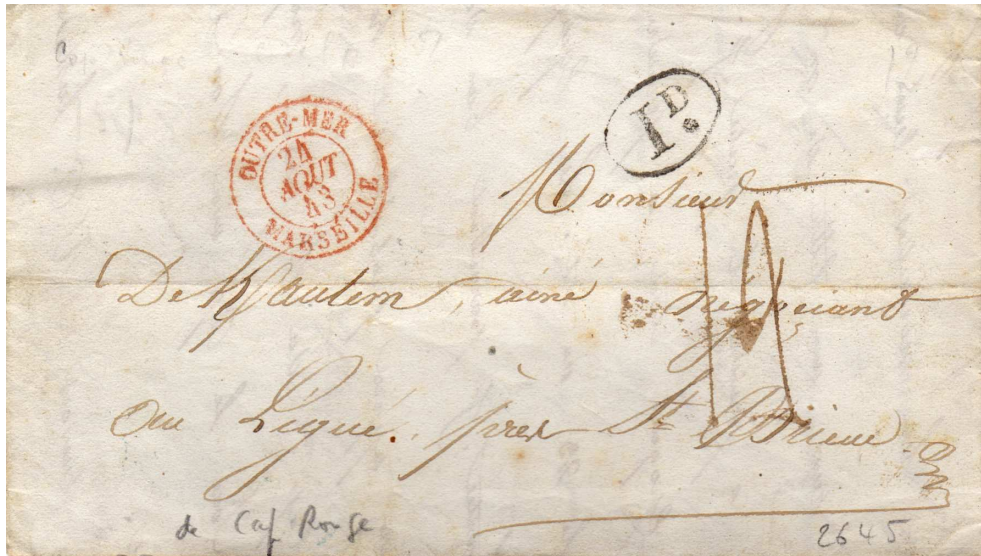 OUTRE-MER
24
AOUT
43
MARSEILLE
1D.
Monsieur
De Kjautem, ainé négociant
au Légué, près St Brieuc
de Cap Rouge
2645